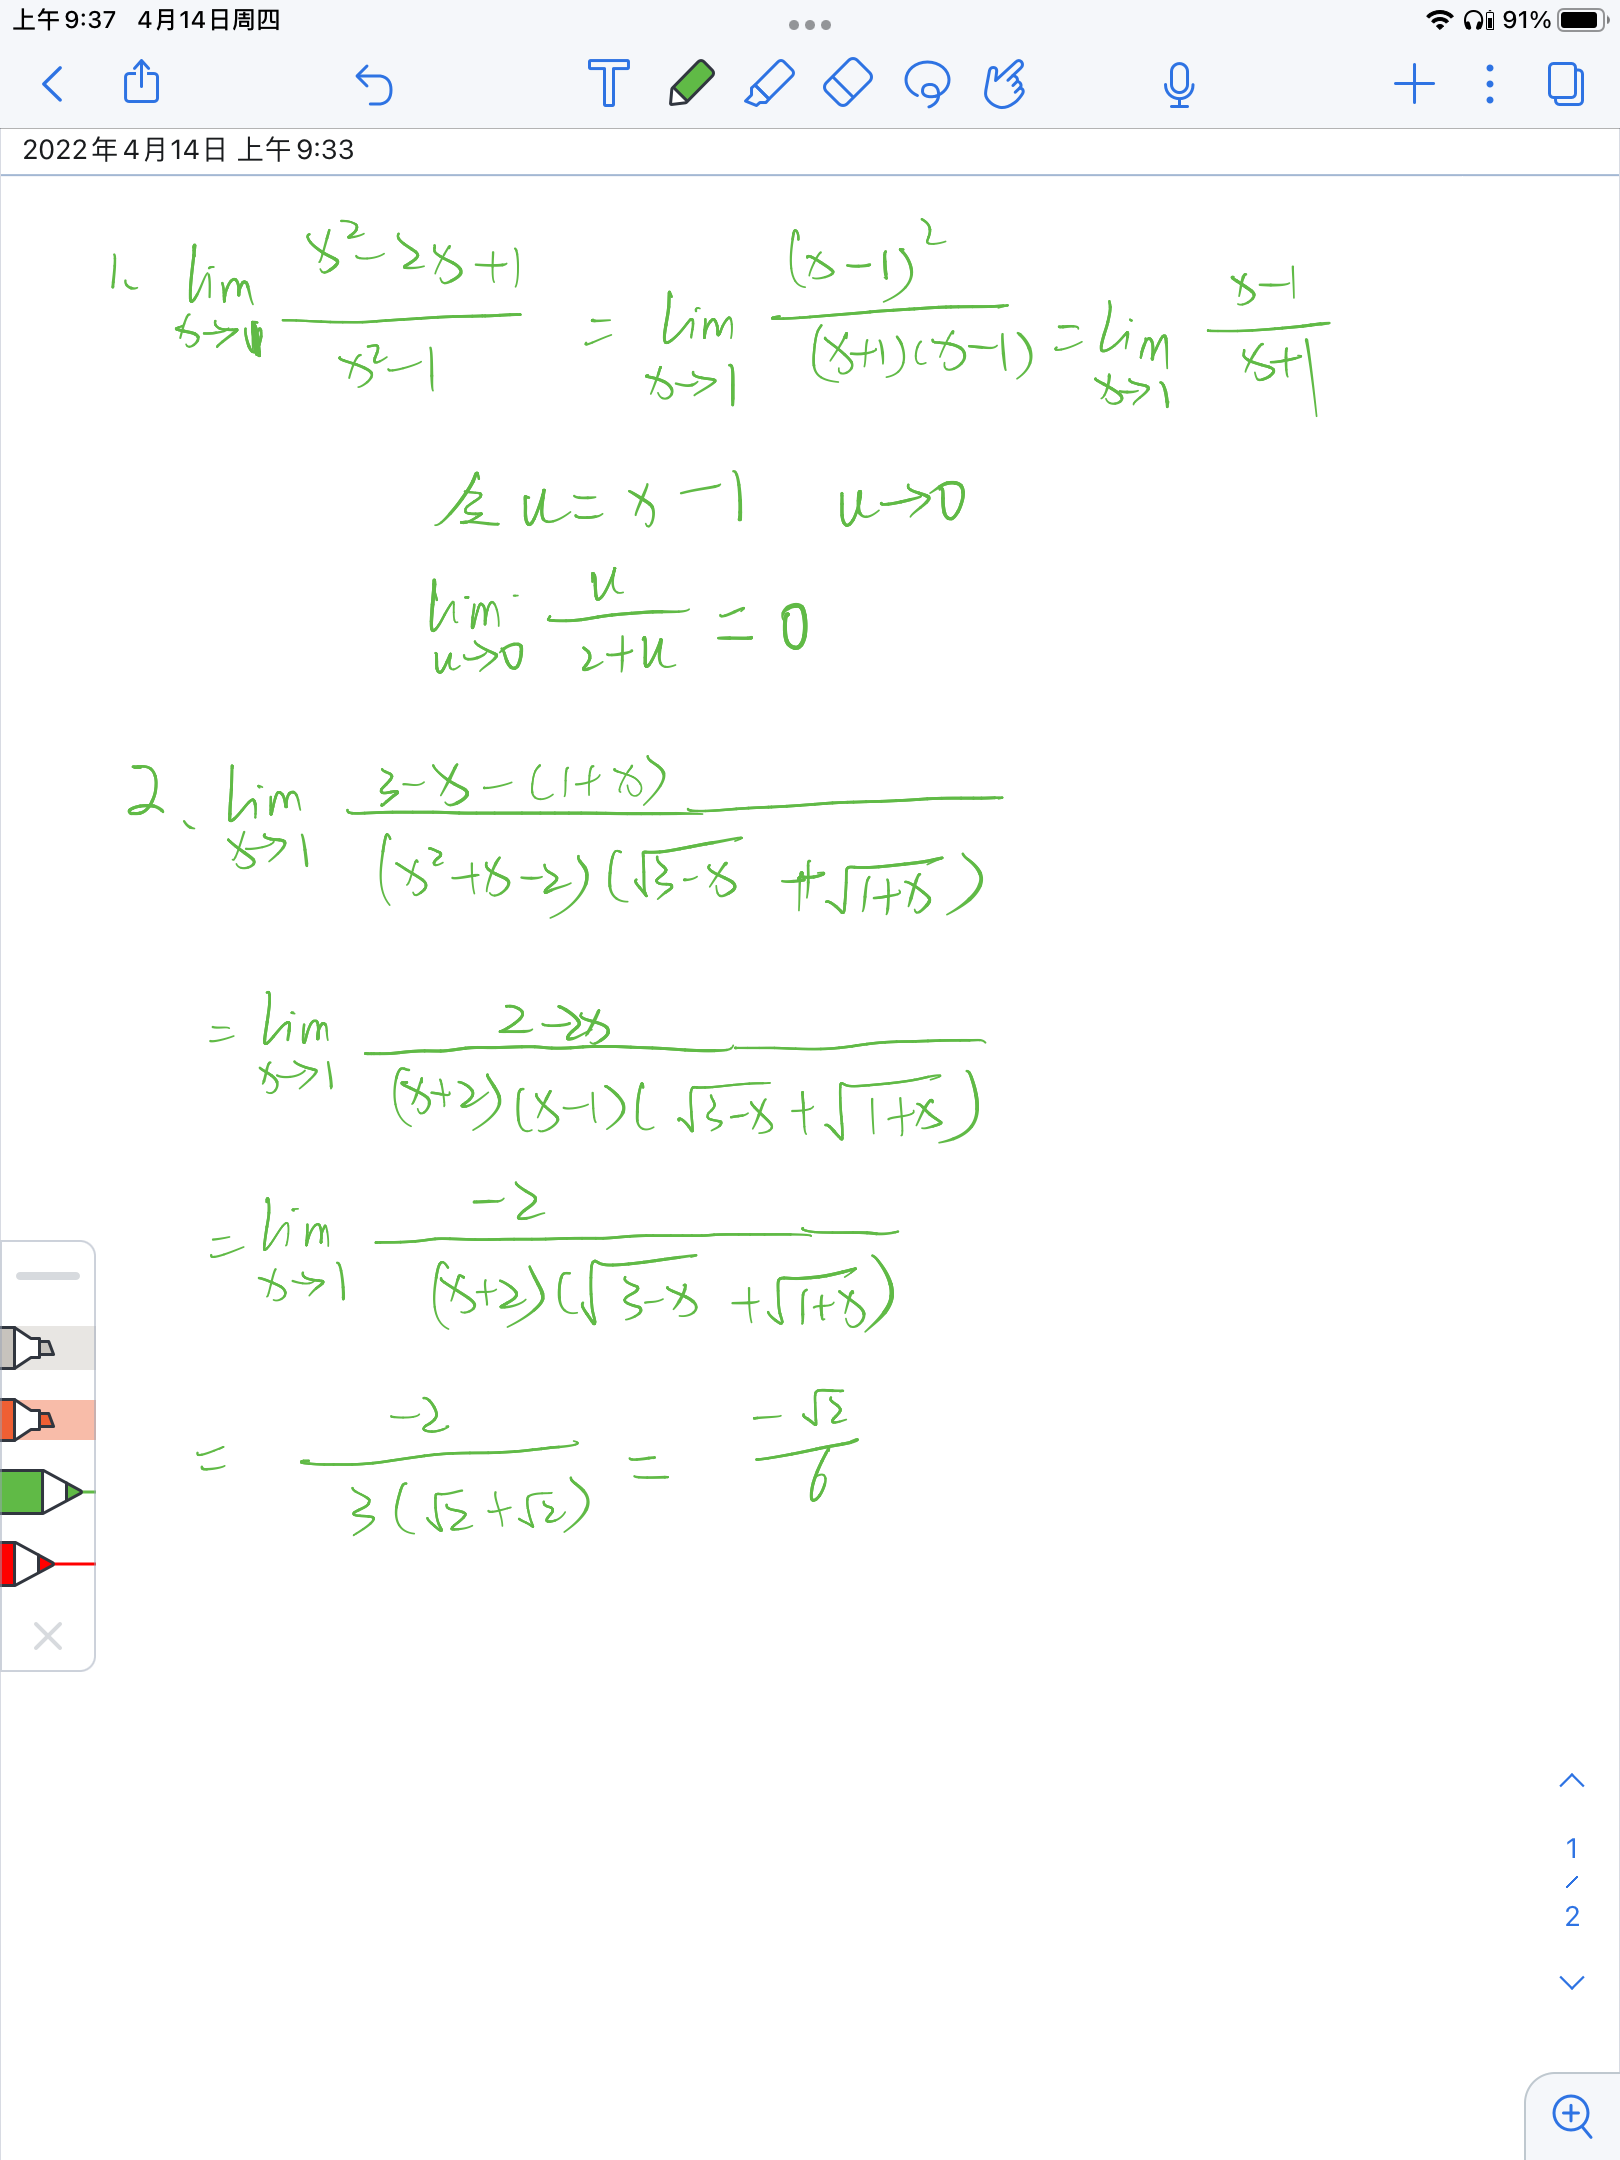 上午9:37 4月14日周四 91%
2022年4月14日 上午9:33
1、lim x→1 (x²-2x+1)/(x²-1) = lim x→1 (x-1)²/((x+1)(x-1)) = lim x→1 (x-1)/(x+1)
令 u=x-1 u→0
lim u→0 u/(2+u) = 0
2、lim x→1 (3-x-(1+x))/((x²+x-2)(√(3-x)+√(1+x)))
= lim x→1 (2-2x)/((x+2)(x-1)(√(3-x)+√(1+x)))
= lim x→1 -2/((x+2)(√(3-x)+√(1+x)))
= -2/(3(√2+√2)) = -√2/6
1
/
2